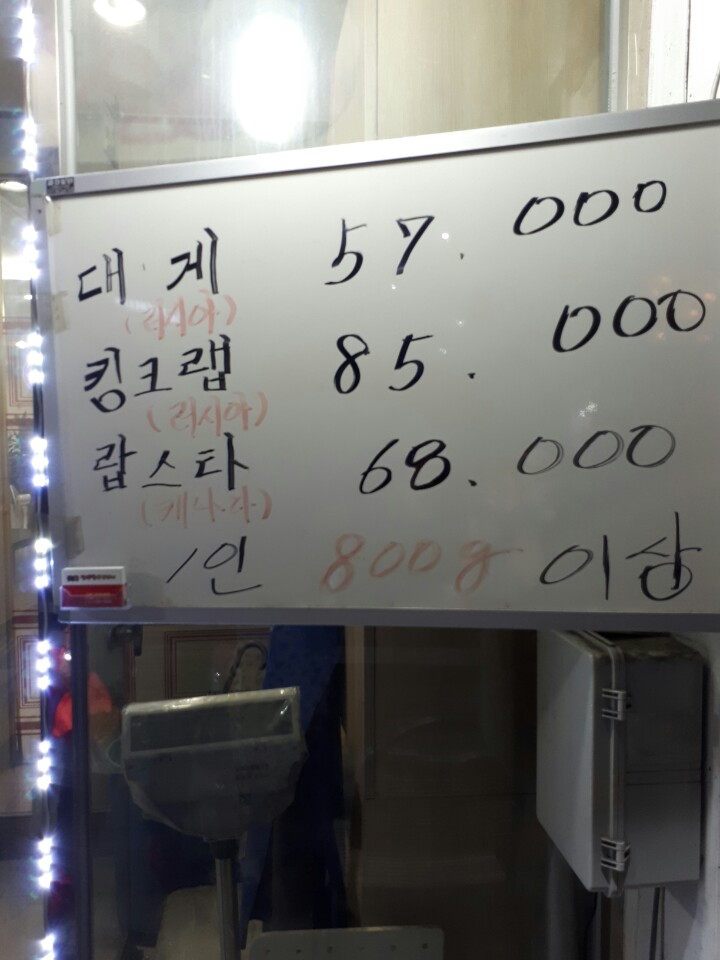 대게 57.000
(러시아)
킹크랩 85.000
(러시아)
랍스타 68.000
(캐나다)
1인 800g 이상